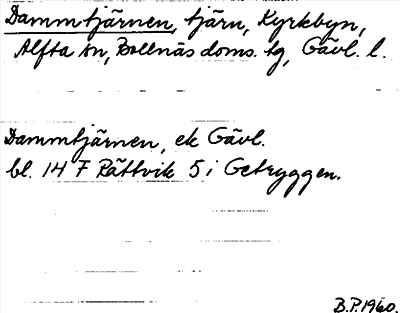 Dammtjärnen, tjärn, Kyrkbyn,
Alfta sn, Bollnäs doms. tg, Gävl. l.
Dammtjärnen, ek Gävl.
bl. 14 F Rättvik 5 i Getryggen.
B.P. 1960.